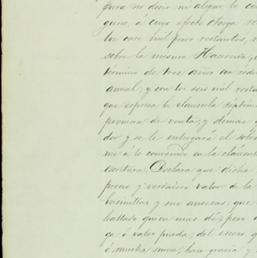 para no decir ni alegar lo con
guno, a cuyo efecto otorga
los once mil pesos restantes,
sobre la misma Hacienda,
término de tres años
anual; y con los seis mil resta
que espresa la cláusula séptim
promesa de venta; y demas
dor y se le entregará el sobr
me á lo convenido en la cláusu
escritura. Declara que dicha
precio y verdadero valor de la
y sus anecsas; que
hallado quien mas dé, pero
ga ó valer pueda, del esceso
ó mucha suma, hace gracia y